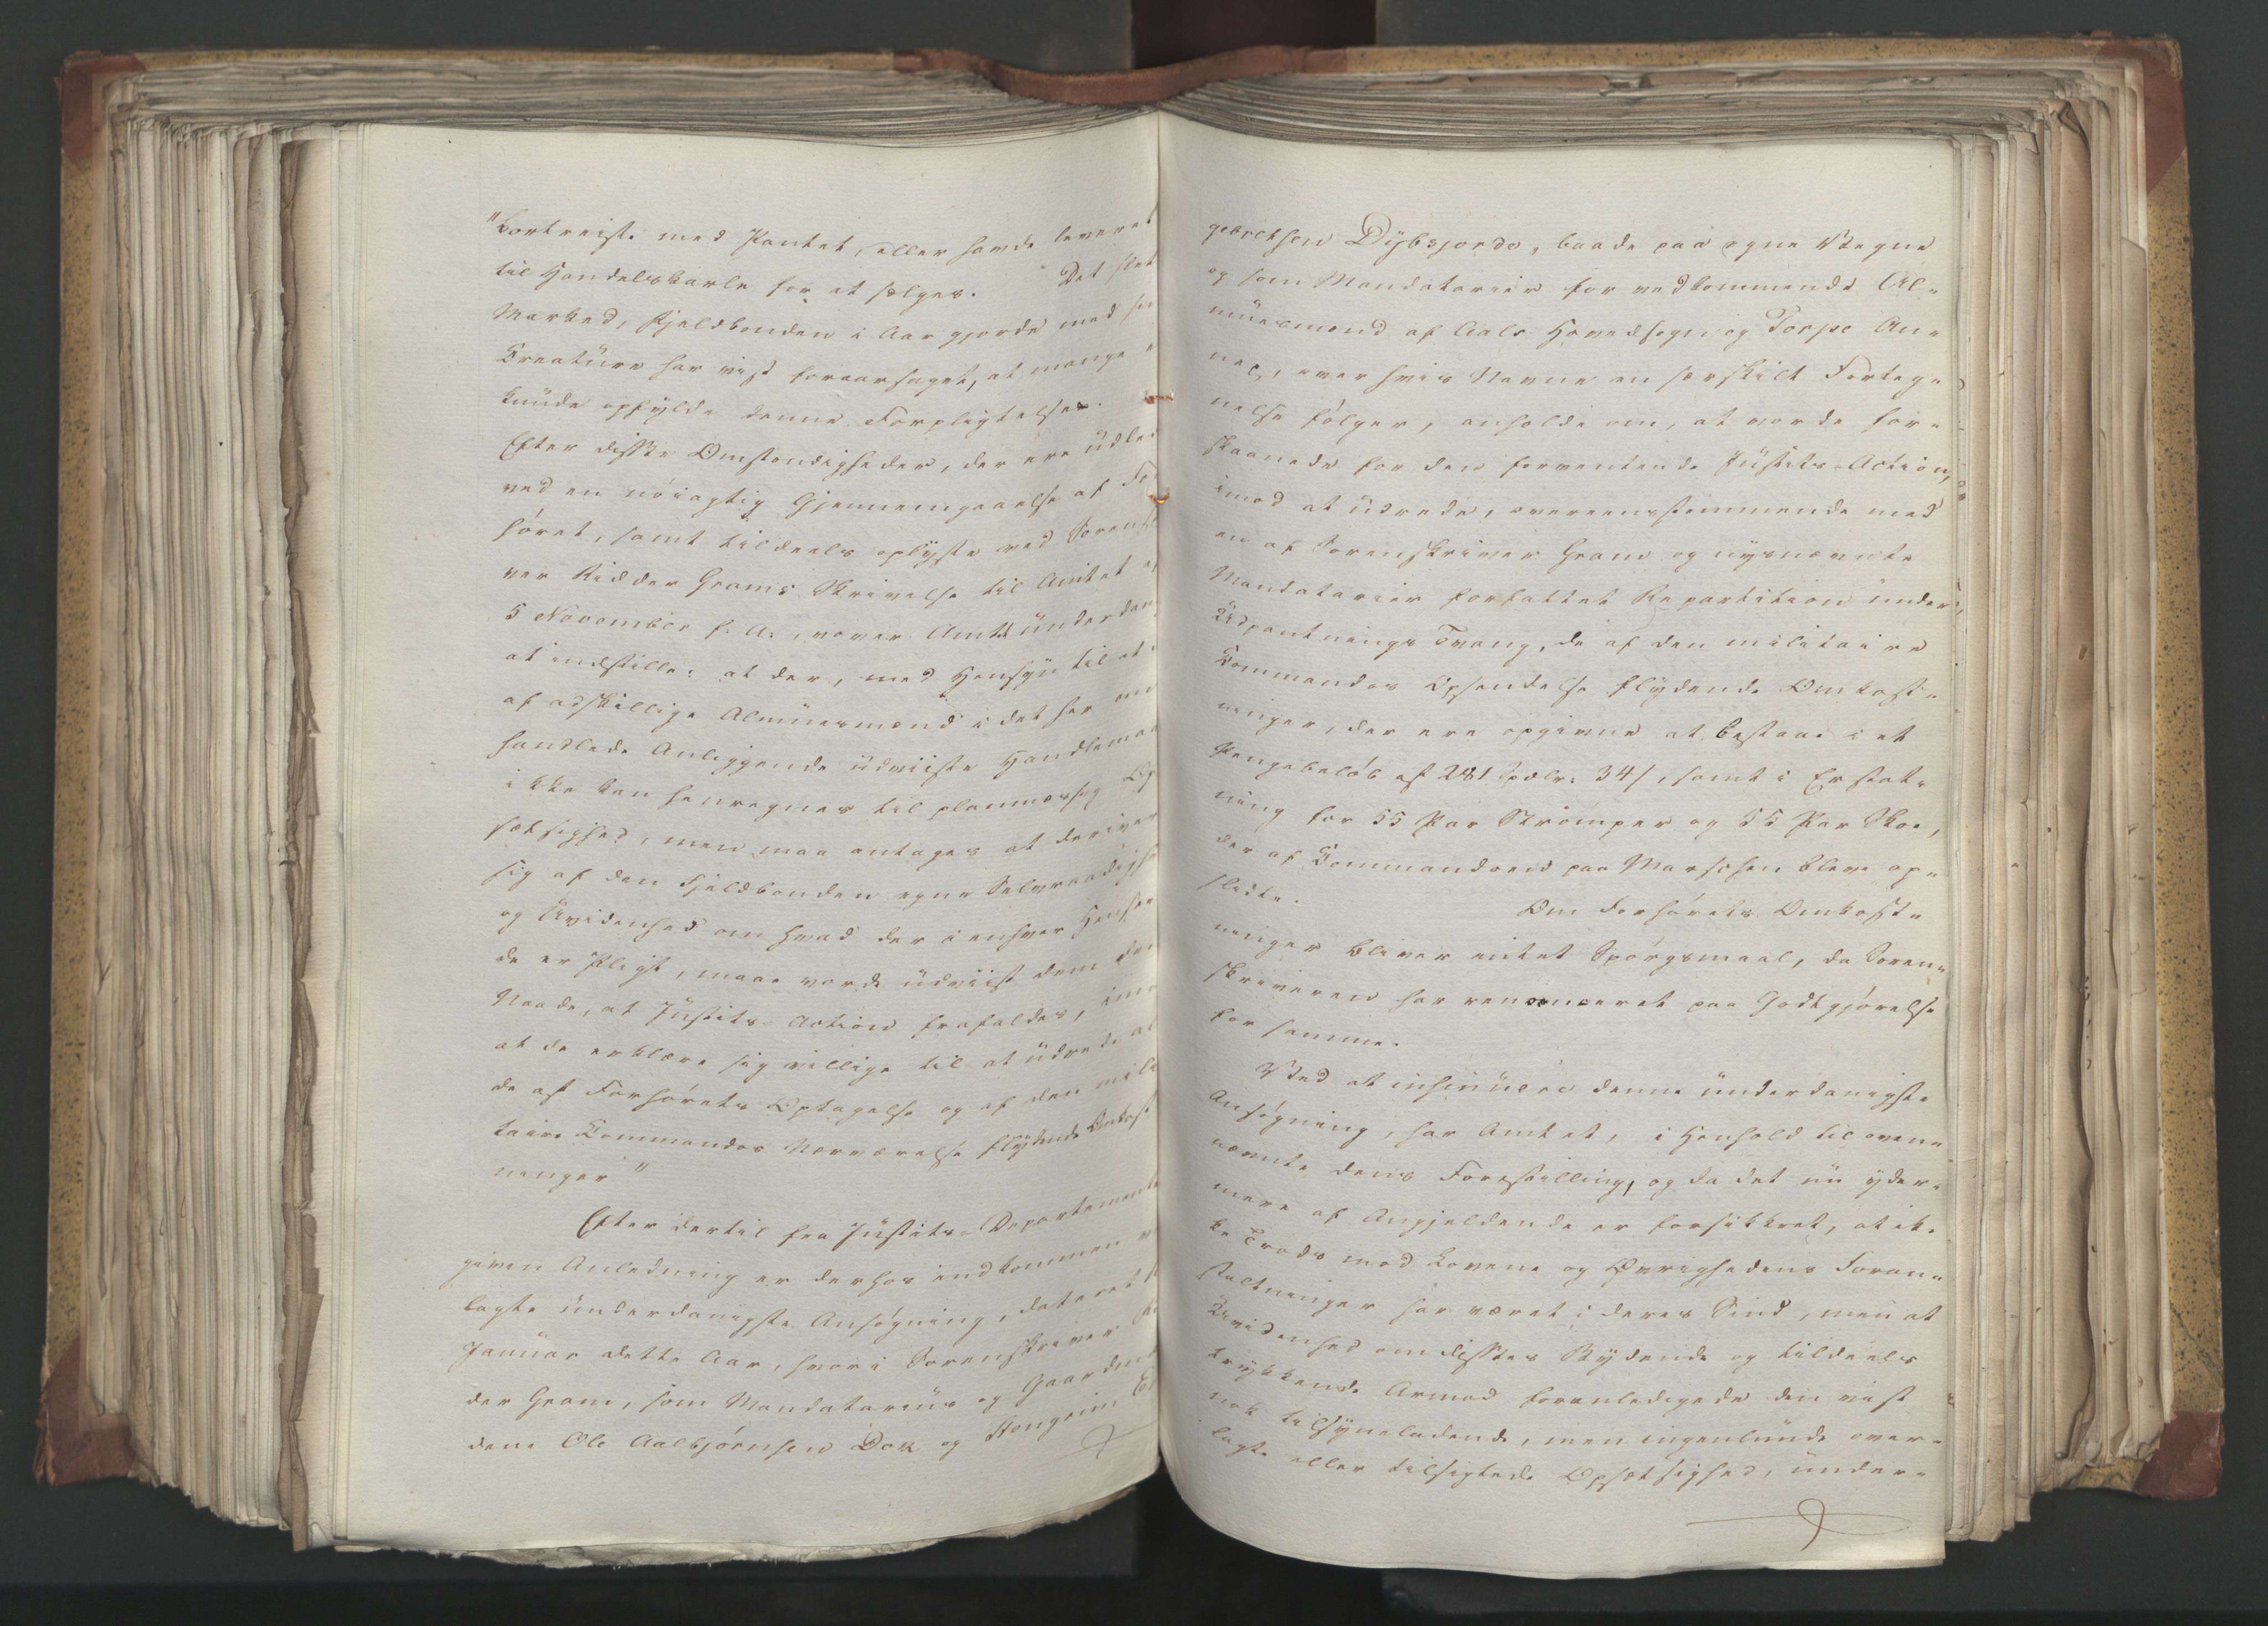 "bortreist med Pantet, eller havde leveret
til Handelskarle for at sælges. Det slet
Marked, Fjeldbonden i Aar gjorde med si
Creature har vist foraarsaget, at mange
kunde opfylde denne Forpligtelse.
Efter disse Omstændigheder, der ere udle
ved en nöiagtig Gjennemgaaelse af For
höret, samt tildeels oplyste ved Sorensk
ver Ridder Grams Skrivelse til Amtet
5 November f. A., vover Amtet underdan
at indstille: at der, med Hensyn til at
af adskillige Almuesmænd i det her om
handlede Anliggende udviiste Handlemaa
ikke kan henregnes til planmæssig Op
sætsighed, men maa antages at derivere
sig af den Fjeldbonden egne Selvraadighe
og Uvidenhed om hvad der i enhver Hense
de er Pligt, maae vorde udviist dem den
Naade, at Justits-Action frafaldes, imo
at de erklære sig villige til at udrede al
de af Forhörets Optagelse og af den mili
taire Commandos Nærværelse flydende Omkost
ninger"
Efter dertil fra Justits-Departemente
given Anledning er derhos indkommen
lagte underdanigste Ansögning, dateret
Januar dette Aar, hvori Sorenskriver
der Gram, som Mandatarius og Gaard
dene Ole Aalbjörnsen Dok og Hengrim
gebrethsen Dybsjordo, baade paa egne Vegne
og som Mandatarier for vedkommende Al-
muesmænd af Aals Hovedsogn og Torpe An-
nex, over hvis Navne en særskilt Forteg-
nelse fölger, anholde om, at vorde for-
skaanede for den forventende Justits-Action,
imod at udrede, overeensstemmende med
en af Sorenskriver Gram og nysnævnte
Mandatarier forfattet Repartition under
Udpantnings Tvang, de af den militaire
Commandos Opsendelse flydende Omkost-
ninger, der ere opgivne at bestaae i et
Pengebelöb af 281 Spdlr: 34 s, samt i Erstat-
ning for 55 Par Strömper og 55 Par Skoe,
der af Commandoen paa Marschen bleve op-
slidte. Om Forhörets Omkost-
ninger bliver intet Spörgsmaal, da Soren-
skriveren har renonceret paa Godtgjörelse
for samme.
Ved at insinuere denne underdanigste
Ansögning, har Amtet, i Henhold til oven-
nævnte dens Forestilling, og da det nu yder-
mere af Angjeldende er forsikkret, at ik-
ke Trods mod Lovene og Øvrighedens Foran-
staltninger har været i deres Sind, men at
Uvidenhed om disses Bydende og tildeels
trykkende Armod foranledigede den vist
nok tilsyneladende, men ingenlunde over-
lagte eller tilsigtede Opsætsighed, under-